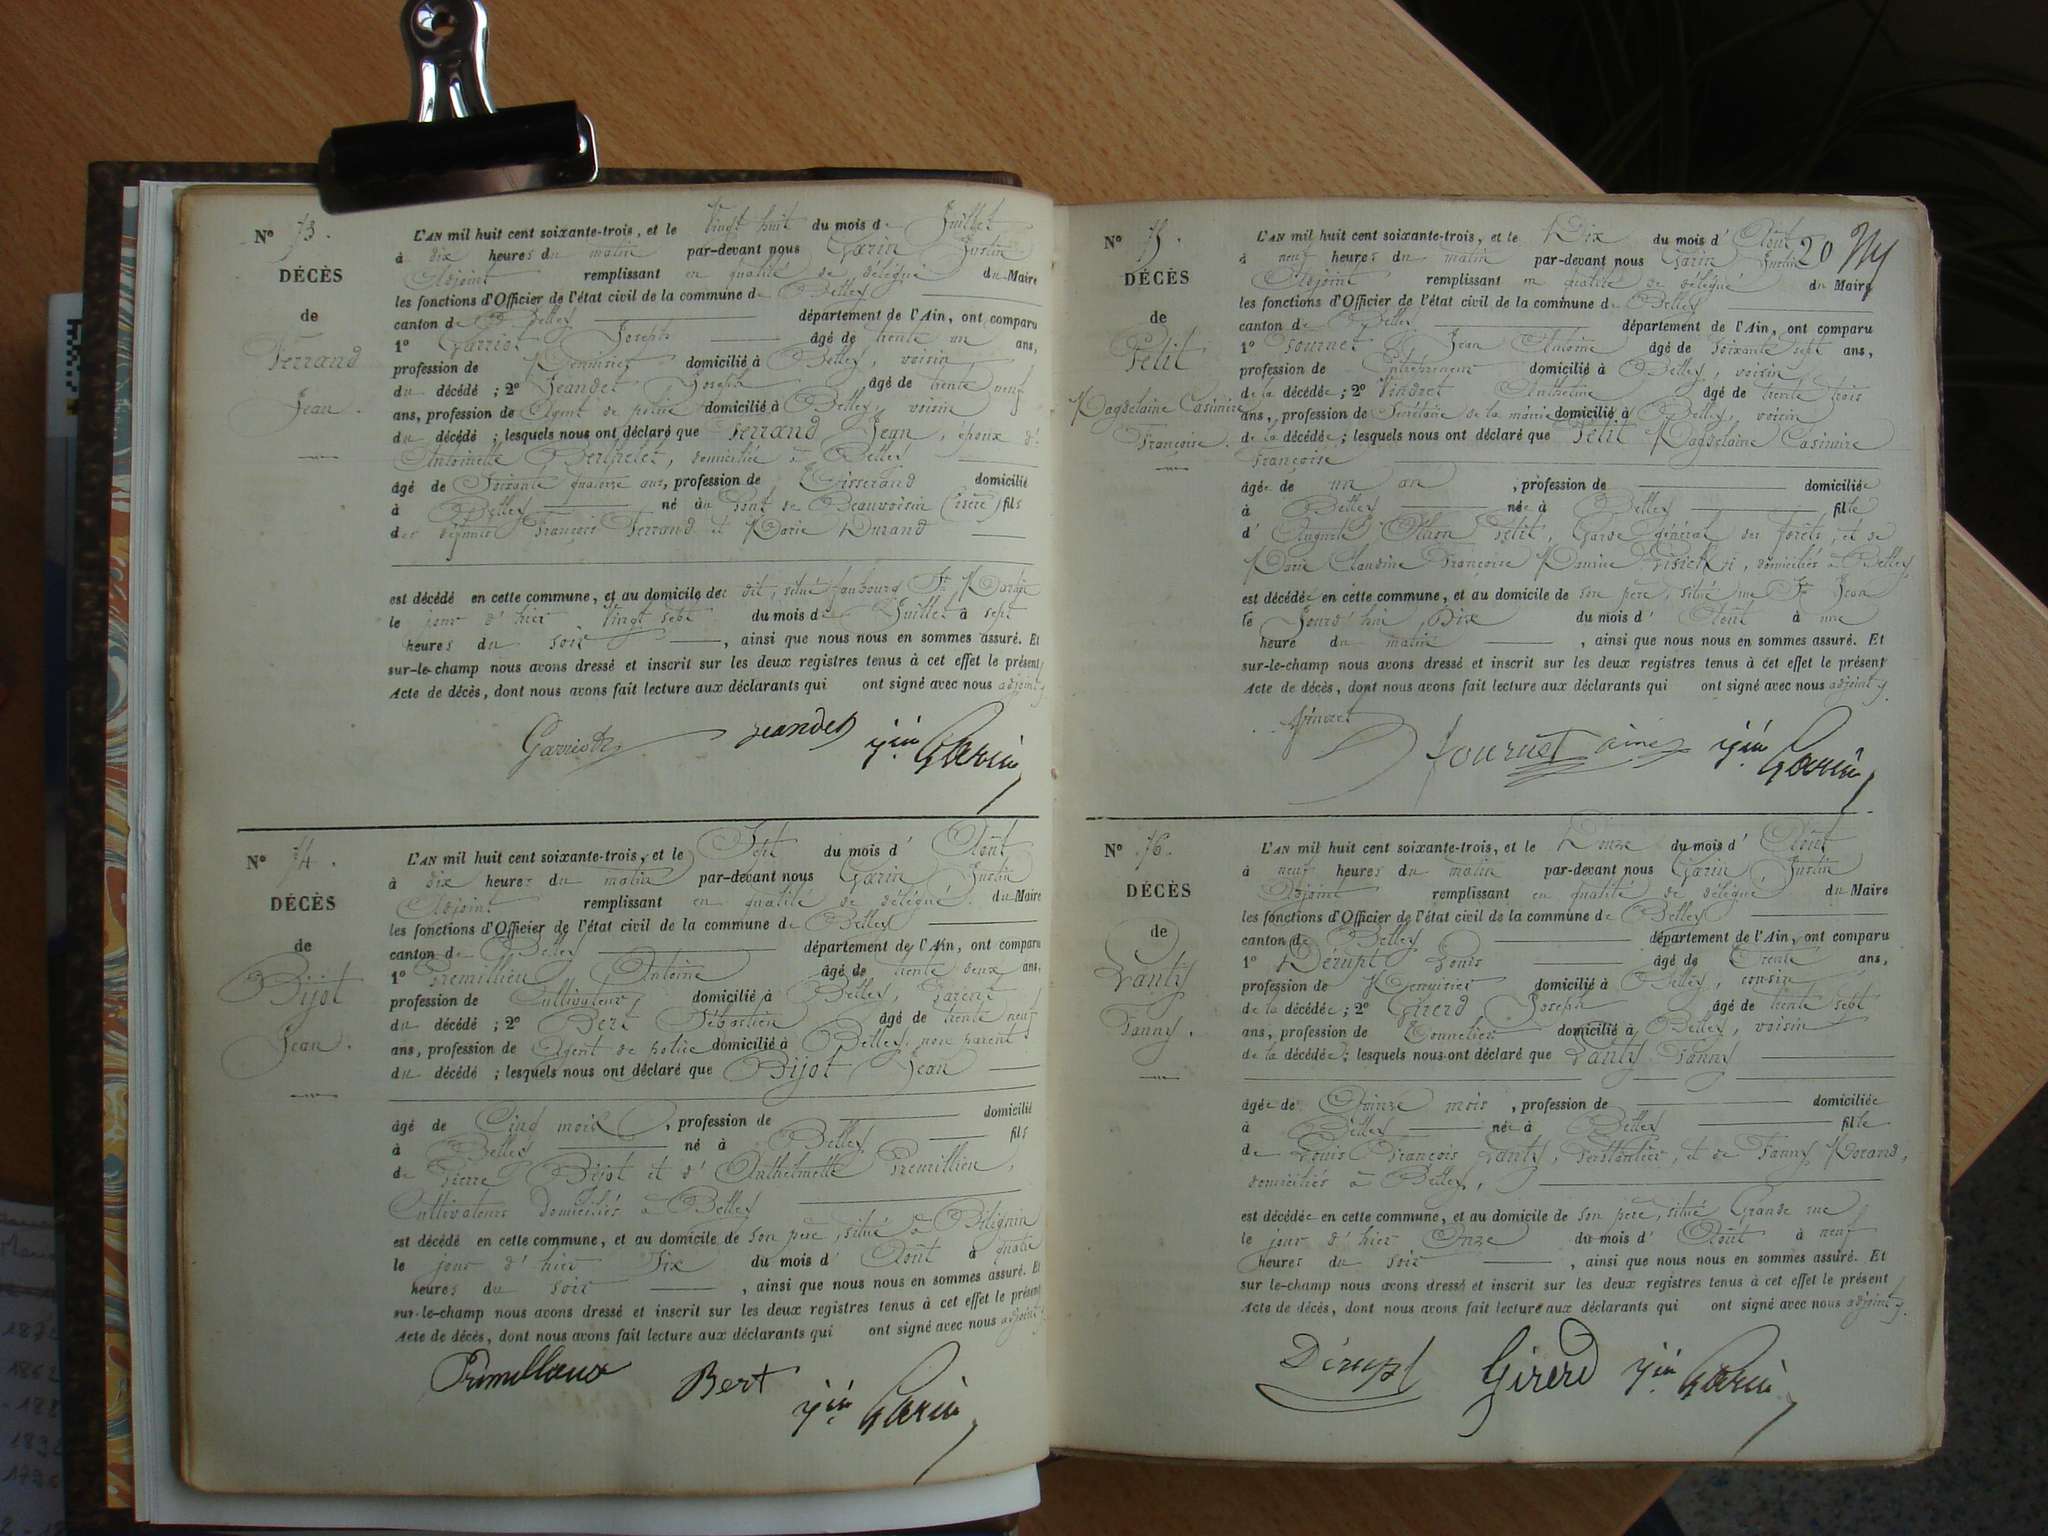 N° 73.
DÉCÈS
de
Ferrand
Jean.
L'AN mil huit cent soixante-trois, et le Vingt huit du mois de Juillet
à dix heures du matin par-devant nous Garin Justin
Adjoint remplissant en qualité de délégué du Maire
les fonctions d'Officier de l'état civil de la commune de Belley
canton de Belley département de l'Ain, ont comparu
1° Garriot Joseph âgé de trente un ans,
profession de Menuisier domicilié à Belley, voisin
du décédé ; 2° Jeandet Joseph âgé de trente neuf
ans, profession de Agent de police domicilié à Belley, voisin
du décédé ; lesquels nous ont déclaré que Ferrand Jean, époux d'
Antoinette Berthelet, domicilié à Belley
âgé de Soixante quatorze ans, profession de Tisserand domicilié
à Belley né au Pont de Beauvoisin (isère) fils
des défunts François Ferrand et Marie Durand
est décédé en cette commune, et au domicile de dit, situé faubourg St Martin
le jour d'hier Vingt sept du mois de Juillet à sept
heures du soir , ainsi que nous nous en sommes assuré. Et
sur-le-champ nous avons dressé et inscrit sur les deux registres tenus à cet effet le présent
Acte de décès, dont nous avons fait lecture aux déclarants qui ont signé avec nous adjoint
Garriot Jeandet Jin Garin
N° 74.
DÉCÈS
de
Bijot
Jean.
L'AN mil huit cent soixante-trois, et le Sept du mois d' Août
à dix heures du matin par-devant nous Garin Justin
Adjoint remplissant en qualité de délégué du Maire
les fonctions d'Officier de l'état civil de la commune de Belley
canton de Belley département de l'Ain, ont comparu
1° Premillieu Antoine âgé de trente deux ans,
profession de Cultivateur domicilié à Belley, Parent
du décédé ; 2° Bert Sébastien âgé de trente neuf
ans, profession de Agent de police domicilié à Belley, non parent
du décédé ; lesquels nous ont déclaré que Bijot Jean
âgé de Cinq mois , profession de domicilié
à Belley né à Belley fils
de Pierre Bijot et d' Anthelmette Premillieu,
Cultivateurs domiciliés à Belley
est décédé en cette commune, et au domicile de son père, situé à Bélignin
le jour d'hier Six du mois d' Août à quatre
heures du soir , ainsi que nous nous en sommes assuré. Et
sur-le-champ nous avons dressé et inscrit sur les deux registres tenus à cet effet le présent
Acte de décès, dont nous avons fait lecture aux déclarants qui ont signé avec nous adjoint
Bert Jin Garin
20
N° 75.
DÉCÈS
de
Petit
Magdelaine Casimire
Françoise.
L'AN mil huit cent soixante-trois, et le Dix du mois d' Août
à neuf heures du matin par-devant nous Garin Justin
Adjoint remplissant en qualité de délégué du Maire
les fonctions d'Officier de l'état civil de la commune de Belley
canton de Belley département de l'Ain, ont comparu
1° Fournet Jean Antoine âgé de soixante sept ans,
profession de Entrepreneur domicilié à Belley, voisin
de la décédée ; 2° Vindret Anthelme âgé de trente trois
ans, profession de Secrétaire de la mairie domicilié à Belley, voisin
de la décédée ; lesquels nous ont déclaré que Petit Magdelaine Casimire
Françoise
âgée de un an , profession de domiciliée
à Belley née à Belley fille
d' Auguste Othon Petit, Garde général des forêts, et de
Marie Claudine Françoise Maurine , domiciliés à Belley
est décédée en cette commune, et au domicile de son père, situé rue St Jean
le Jourd'hui Dix du mois d' Août à une
heure du matin , ainsi que nous nous en sommes assuré. Et
sur-le-champ nous avons dressé et inscrit sur les deux registres tenus à cet effet le présent
Acte de décès, dont nous avons fait lecture aux déclarants qui ont signé avec nous adjoint
Vindret
Fournet ainé Jin Garin
N° 76.
DÉCÈS
de
Lanty
Fanny.
L'AN mil huit cent soixante-trois, et le Douze du mois d' Août
à neuf heures du matin par-devant nous Garin Justin
Adjoint remplissant en qualité de délégué du Maire
les fonctions d'Officier de l'état civil de la commune de Belley
canton de Belley département de l'Ain, ont comparu
1° Dérupt Louis âgé de Trente ans,
profession de Menuisier domicilié à Belley, cousin
de la décédée ; 2° Girerd Joseph âgé de trente sept
ans, profession de Tonnelier domicilié à Belley, voisin
de la décédée ; lesquels nous ont déclaré que Lanty Fanny
âgée de Quinze mois , profession de domiciliée
à Belley née à Belley fille
de Louis François Lanty, ferblantier, et de Fanny Morand,
domiciliés à Belley,
est décédée en cette commune, et au domicile de son père, situé Grande rue
le jour d'hier Onze du mois d' Août à neuf
heures du soir , ainsi que nous nous en sommes assuré. Et
sur le-champ nous avons dressé et inscrit sur les deux registres tenus à cet effet le présent
Acte de décès, dont nous avons fait lecture aux déclarants qui ont signé avec nous adjoint
Dérupt Girerd Jin Garin